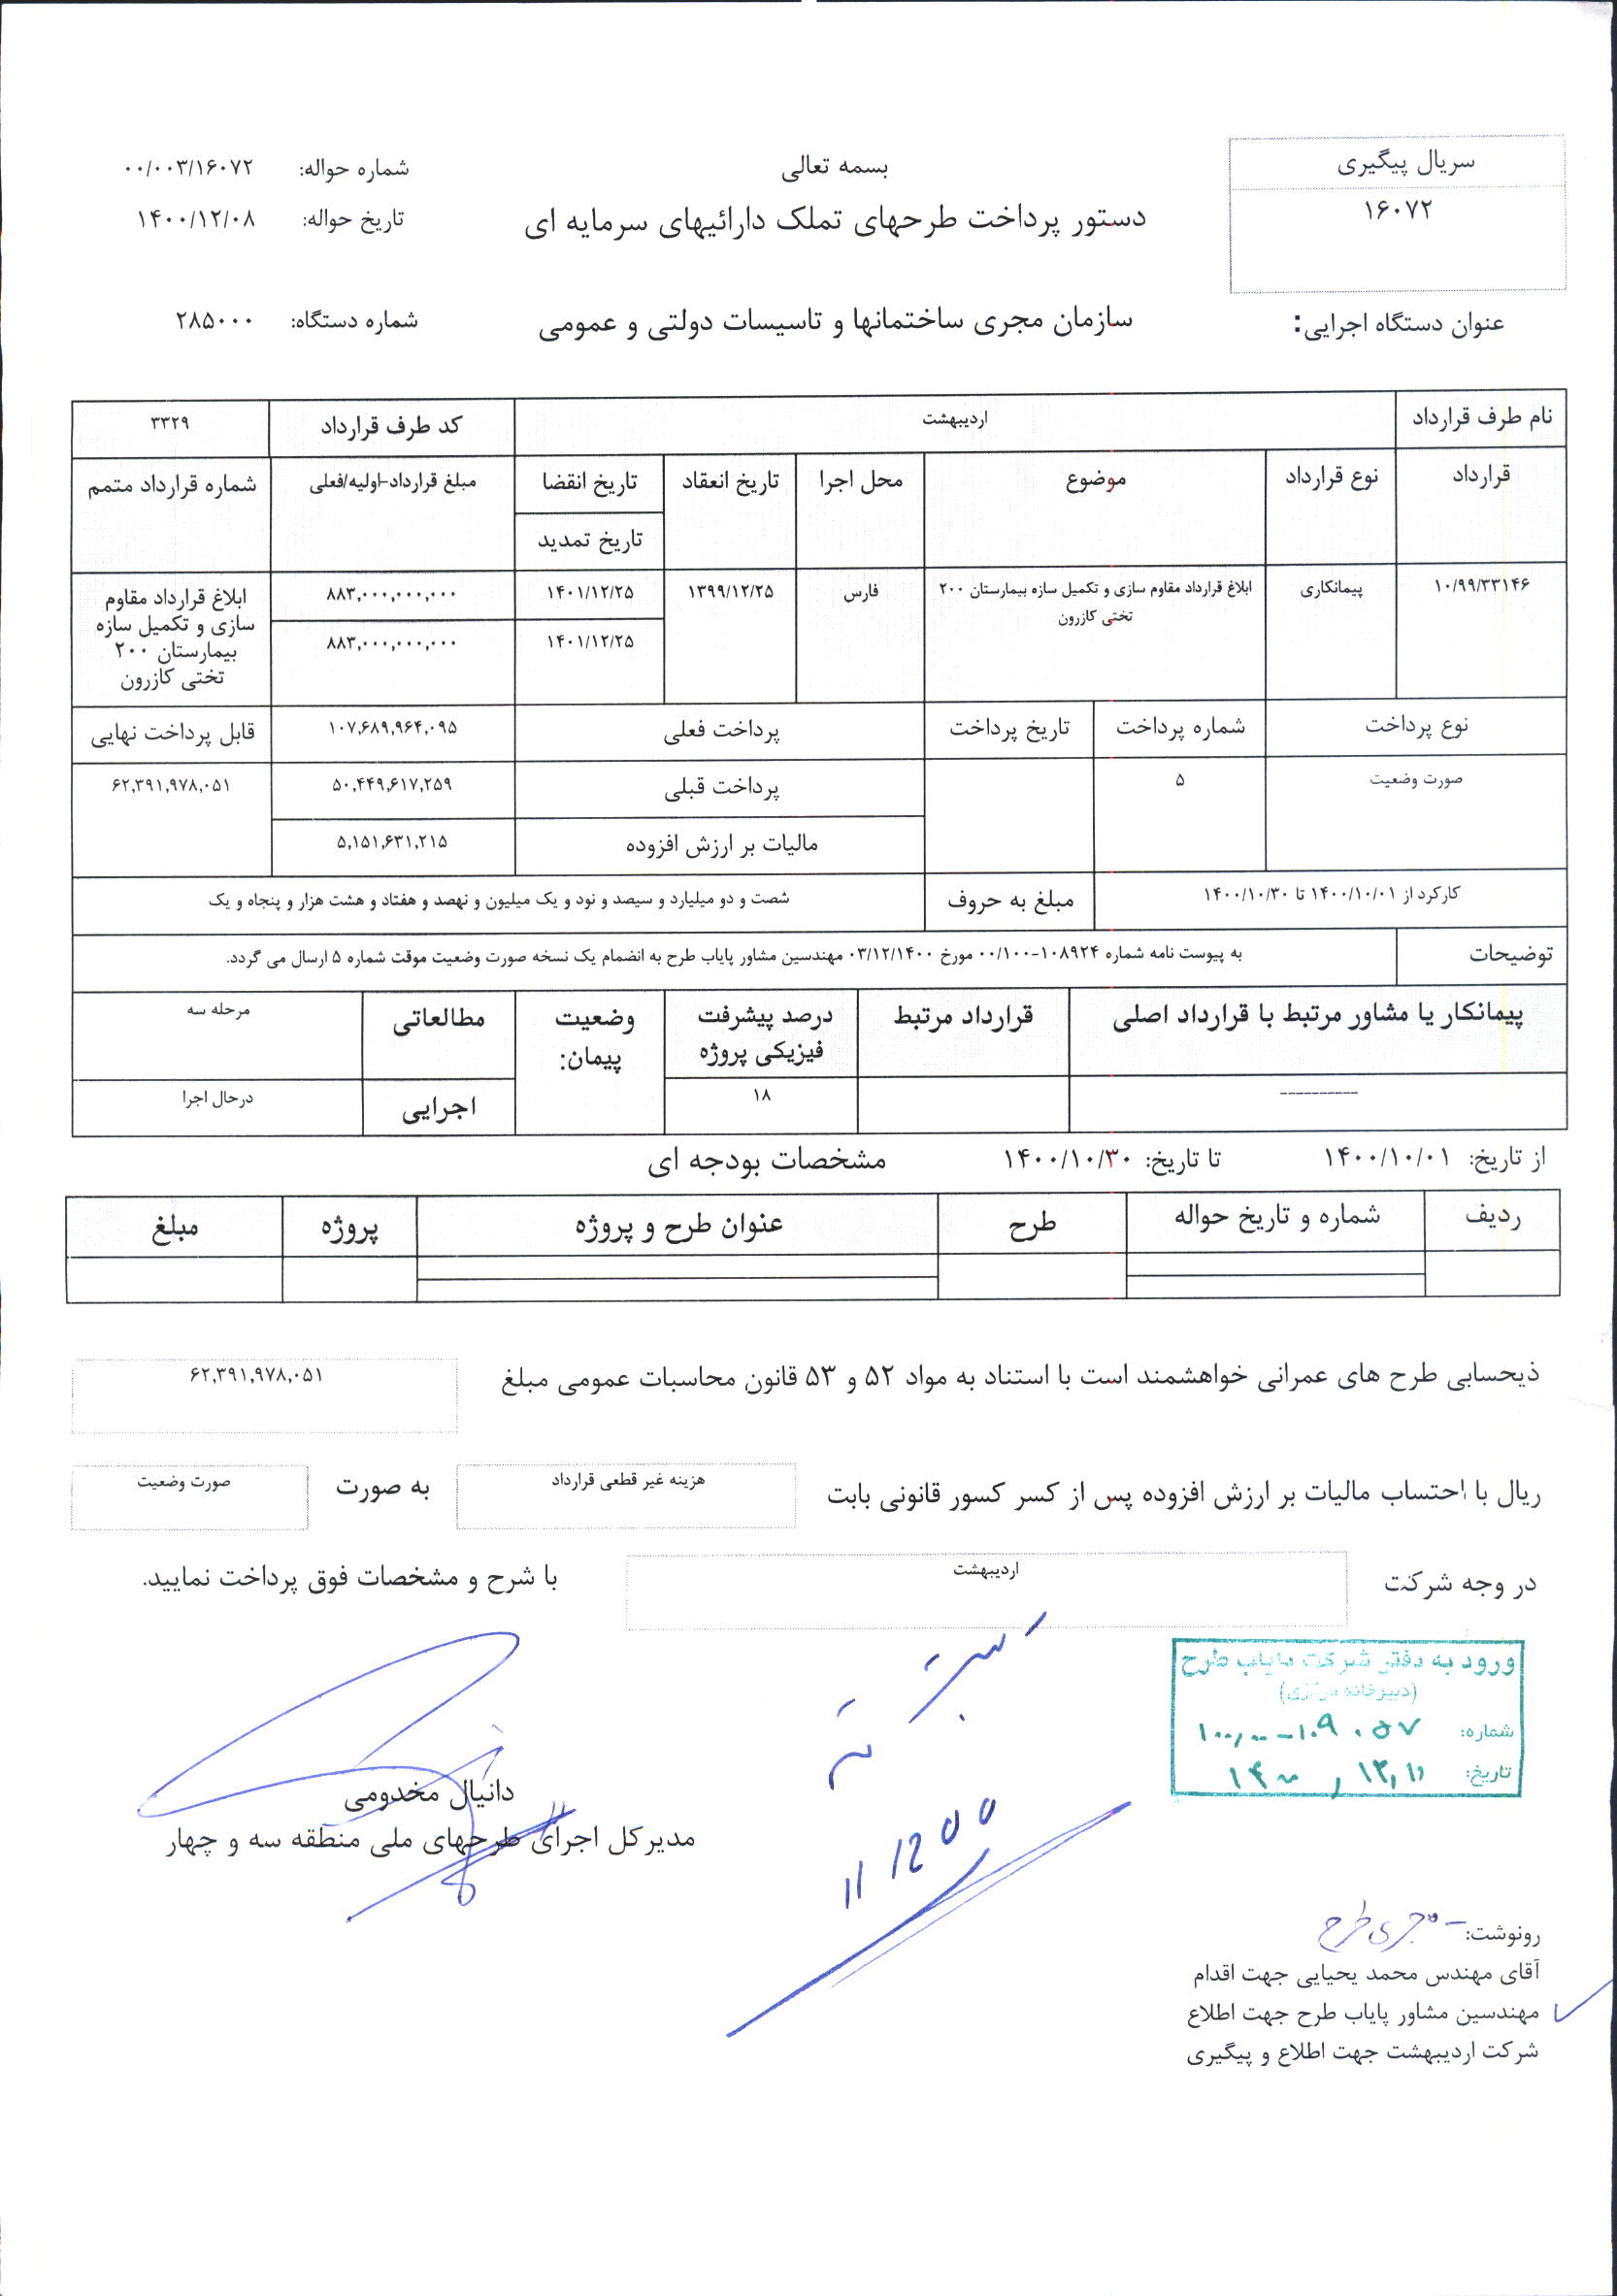 بسمه تعالی
دستور پرداخت طرحهای تملک دارائیهای سرمایه ای
سریال پیگیری
۱۶۰۷۲
شماره حواله: ۰۰/۰۰۳/۱۶۰۷۲
تاریخ حواله: ۱۴۰۰/۱۲/۰۸
عنوان دستگاه اجرایی: سازمان مجری ساختمانها و تاسیسات دولتی و عمومی شماره دستگاه: ۲۸۵۰۰۰
نام طرف قرارداد اردیبهشت کد طرف قرارداد ۳۳۲۹
قرارداد نوع قرارداد موضوع محل اجرا تاریخ انعقاد تاریخ انقضا مبلغ قرارداد-اولیه/فعلی شماره قرارداد متمم
تاریخ تمدید
۱۰/۹۹/۳۳۱۴۶ پیمانکاری ابلاغ قرارداد مقاوم سازی و تکمیل سازه بیمارستان ۲۰۰ فارس ۱۳۹۹/۱۲/۲۵ ۱۴۰۱/۱۲/۲۵ ۸۸۳,۰۰۰,۰۰۰,۰۰۰ ابلاغ قرارداد مقاوم
تختی کازرون سازی و تکمیل سازه
۱۴۰۱/۱۲/۲۵ ۸۸۳,۰۰۰,۰۰۰,۰۰۰ بیمارستان ۲۰۰
تختی کازرون
نوع پرداخت شماره پرداخت تاریخ پرداخت پرداخت فعلی ۱۰۷,۶۸۹,۹۶۴,۰۹۵ قابل پرداخت نهایی
صورت وضعیت ۵ پرداخت قبلی ۵۰,۴۴۹,۶۱۷,۲۵۹ ۶۲,۳۹۱,۹۷۸,۰۵۱
مالیات بر ارزش افزوده ۵,۱۵۱,۶۳۱,۲۱۵
کارکرد از ۱۴۰۰/۱۰/۰۱ تا ۱۴۰۰/۱۰/۳۰ مبلغ به حروف شصت و دو میلیارد و سیصد و نود و یک میلیون و نهصد و هفتاد و هشت هزار و پنجاه و یک
توضیحات به پیوست نامه شماره ۱۰۸۹۲۴-۰۰/۱۰۰ مورخ ۰۳/۱۲/۱۴۰۰ مهندسین مشاور پایاب طرح به انضمام یک نسخه صورت وضعیت موقت شماره ۵ ارسال می گردد.
پیمانکار یا مشاور مرتبط با قرارداد اصلی قرارداد مرتبط درصد پیشرفت وضعیت مطالعاتی مرحله سه
فیزیکی پروژه پیمان:
---------- ۱۸ اجرایی درحال اجرا
از تاریخ: ۱۴۰۰/۱۰/۰۱ تا تاریخ: ۱۴۰۰/۱۰/۳۰ مشخصات بودجه ای
ردیف شماره و تاریخ حواله طرح عنوان طرح و پروژه پروژه مبلغ
ذیحسابی طرح های عمرانی خواهشمند است با استناد به مواد ۵۲ و ۵۳ قانون محاسبات عمومی مبلغ ۶۲,۳۹۱,۹۷۸,۰۵۱
ریال با احتساب مالیات بر ارزش افزوده پس از کسر کسور قانونی بابت هزینه غیر قطعی قرارداد به صورت صورت وضعیت
در وجه شرکت اردیبهشت با شرح و مشخصات فوق پرداخت نمایید.
ورود به دفتر شرکت پایاب طرح
(دبیرخانه مرکزی)
شماره: ۱۰۰,۰۰-۱۰۹۰۵۷
تاریخ:
دانیال مخدومی
مدیرکل اجرای طرحهای ملی منطقه سه و چهار
رونوشت: - مجری طرح
آقای مهندس محمد یحیایی جهت اقدام
مهندسین مشاور پایاب طرح جهت اطلاع
شرکت اردیبهشت جهت اطلاع و پیگیری